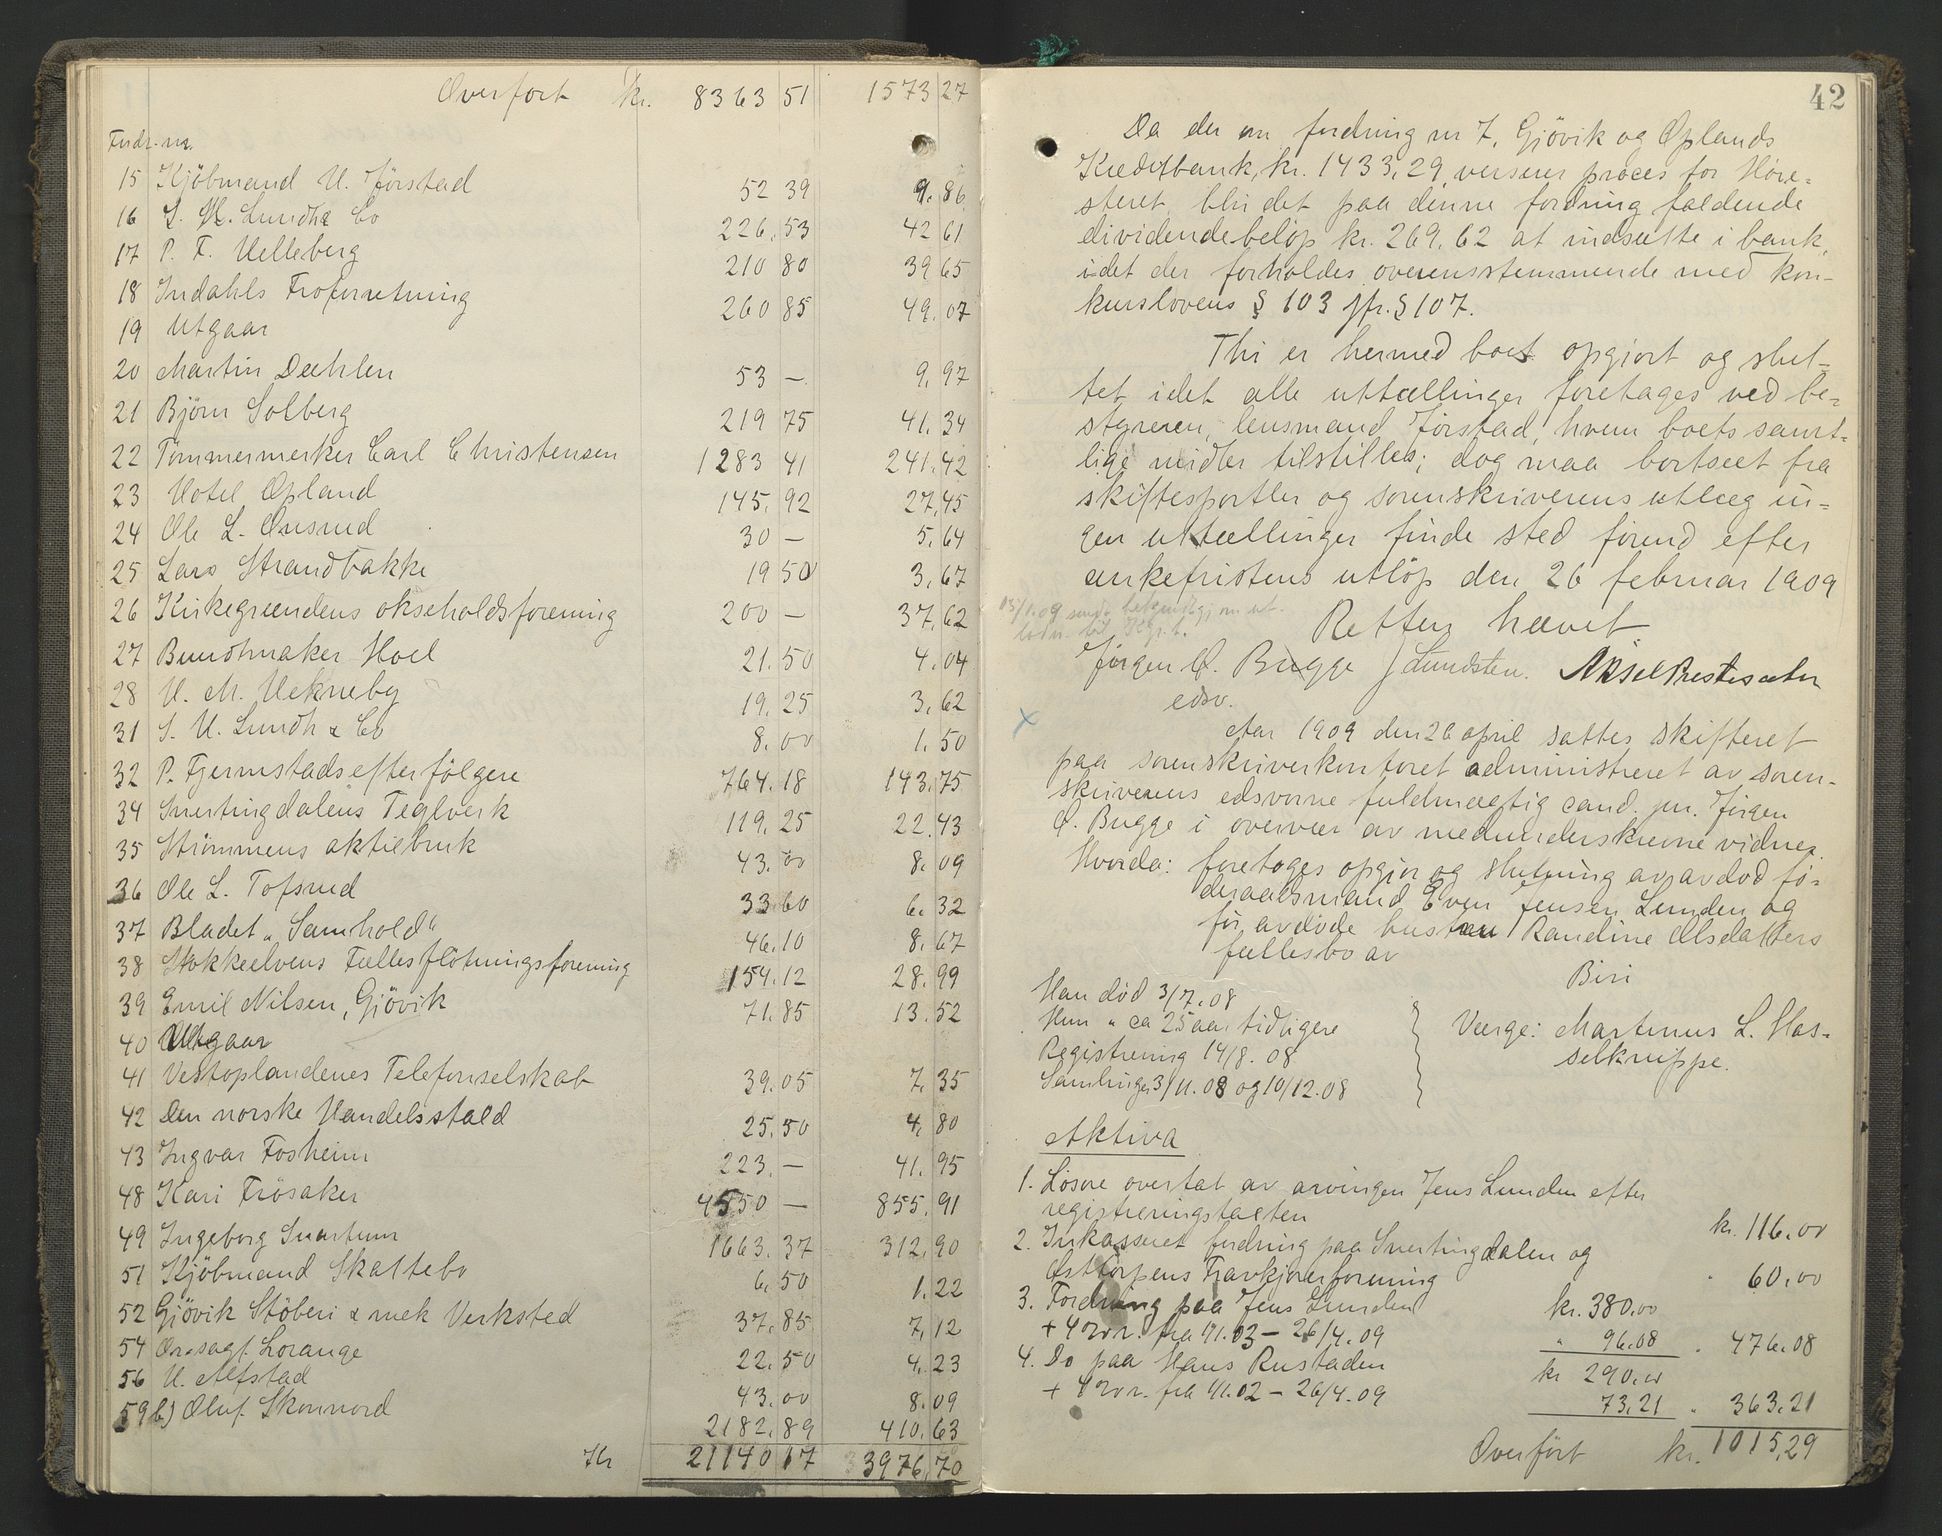 Overført kr. 8363 51 1573 27
Fordr. nr.
15 Kjöbmand U. Jörstad 52 39 9.86
16 S. H. Lundh & Co 226.53 42 61
17 P. F. Velleberg 210 80 39 65
18 Indahls Froforretning 260 85 49.07
19 Utgaar
20 Martin Dæhlen 53 — 9.97
21 Björn Solberg 219 75 41.34
22 Tömmermerker Carl Christensen 1283 41 241.42
23 Hotel Opland 145.92 27.45
24 Ole L. Onsrud 30 — 5.64
25 Lars Strandbakke 19 50 3.67
26 Kirkegrændens okseholdsforening 200 — 37.62
27 Bundtmaker Hoel 21.50 4.04
28 H. M. Vekneby 19.25 3.62
31 S. H. Lundh & Co 8.00 1.50
32 P. Fjermstads efterfölgere 764.18 143.75
34 Snertingdalens Teglverk 119.25 22.43
35 Strömmens aktiebruk 43.00 8.09
36 Ole L. Tofsrud 33 60 6.32
37 Bladet „Samhold" 46.10 8.67
38 Stokkeelvens Fællesflötningsforening 154.12 28.99
39 Emil Nilsen, Gjövik 71.85 13.52
40 Utgaar
41 Vestoplandenes Telefonselskab 39.05 7.35
42 Den norske Handelsstald 25.50 4.80
43 Ingvar Fosheim 223.— 41.95
48 Kari Frösaker 4550 — 855.91
49 Ingeborg Svartum 1663.37 312.90
51 Kjöbmand Skattebo 6.50 1.22
52 Gjövik Stöberi & mek Verksted 37.85 7.12
54 O.r.sagf. Lorange 22.50 4.23
56 H. Alfstad 43.00 8.09
59 b) Oluf Skonnord 2182.89 410.63
Kr 21140 17 3976.70
42
Da der om fordring nr 7, Gjövik og Oplands
Kreditbank, kr. 1433,29 verserer proces for Höie-
steret, blir det paa denne fordring faldende
dividendebelöp kr. 269.62 at indsætte i bank,
idet der forholdes overensstemmende med kon-
kurslovens § 103 jfr. § 107.
Thi er hermed boet opgjort og slut-
tet idet alle uttællinger foretages ved be-
styreren, lensmand Jörstad, hvem boets samt-
lige midler tilstilles; dog maa bortseet fra
skiftesportler og sorenskriverens utlæg in-
gen uttællinger finde sted förend efter
ankefristens utlöp den 26 februar 1909
Retten hævet.
Jörgen Ø. Bugge J Lundsten. Aksel Prestesæter
edsv.
Aar 1909 den 26 april sattes skifteret
paa sorenskriverkontoret administreret av soren-
skriverens edsvorne fuldmægtig cand. jur. Jörgen
Ø. Bugge i overvær av medunderskrevne vidner.
Hvorda: foretoges opgjör og slutning av avdöd fö-
deraadsmand Even Jensen Lunden og
för avdöde hustru Randine Olsdatters
fællesbo av
Biri
Han död 3/7.08
Hun „ ca 25 aar tidligere
Registrering 14/8.08
Samlinger 3/11.08 og 10/12.08
Værge: Martinus L. Has-
selknippe.
Aktiva
1. Lösöre overtat av arvingen Jens Lunden efter
registreringstaksten kr. 116.00
2. Inkasseret fordring paa Snertingdalen og
Østtorpens Travkjörerforening „ 60.00
3. Fordring paa Jens Lunden kr. 380.00
+ 4% r. fra 1/1.03 – 26/4.09 „ 96.08 „ 476.08
4. Do paa Hans Rustaden kr 290.00
+ 4% r. fra 1/1.02 – 26/4.09 73.21 „ 363.21
Overfört kr. 1015,29